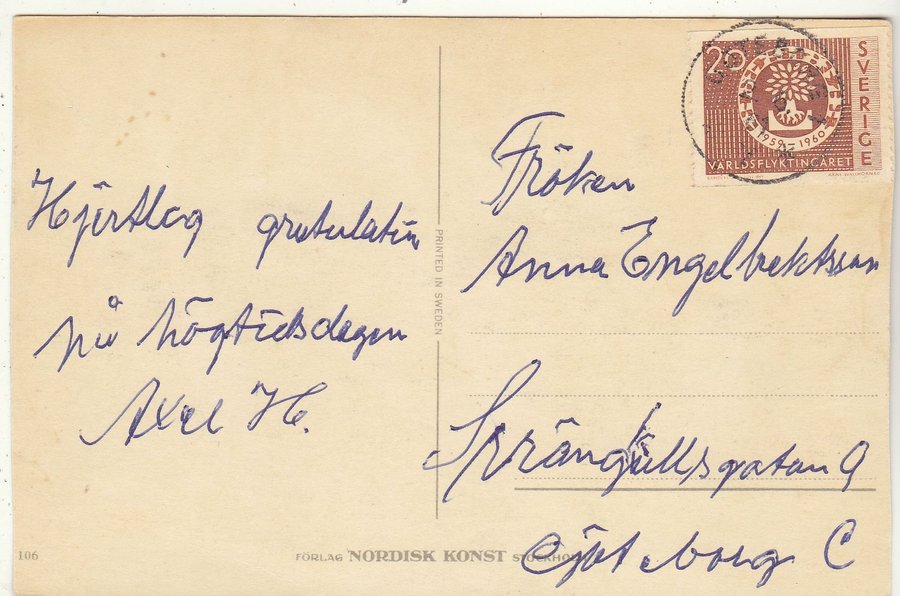 20
SVERIGE
1959 1960
VÄRLDSFLYKTINGÅRET
Fröken
Anna Engelbrektsson
Hjärtlig gratulation
på högtidsdagen
Axel H.
PRINTED IN SWEDEN
Göteborg C
106
FÖRLAG NORDISK KONST STOCKHOLM